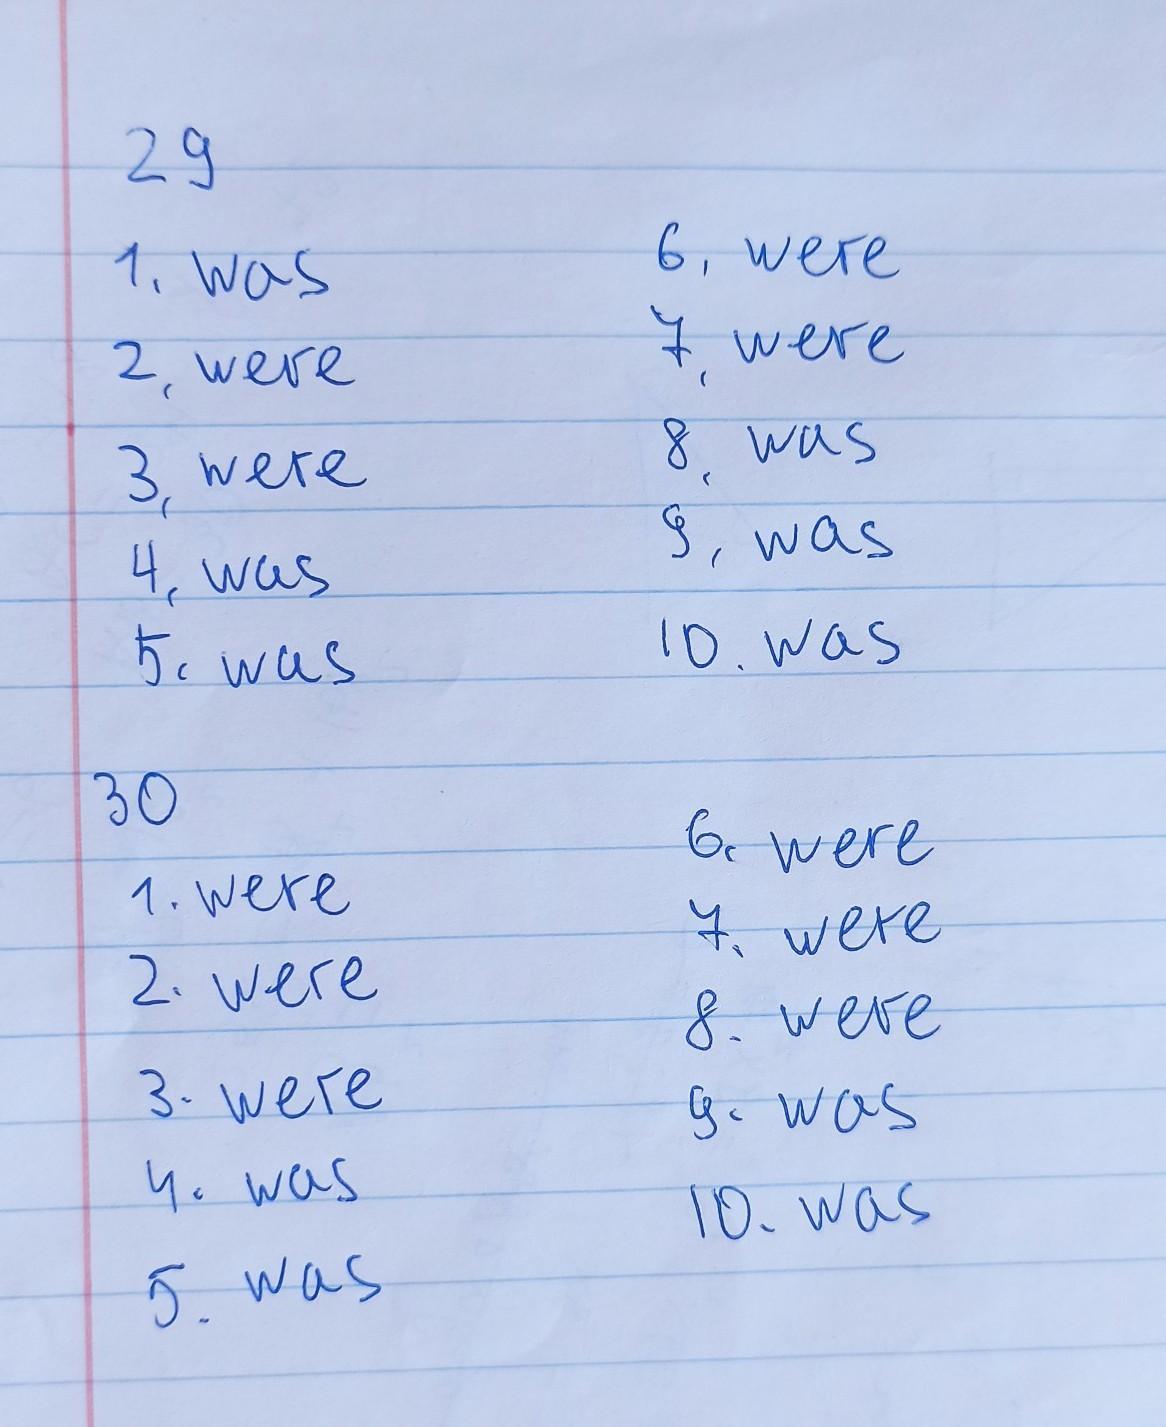 29
1. was
2, were
3, were
4, was
5. was
6, were
7, were
8, was
9, was
10. was
30
1. were
2. were
3. were
4. was
5. was
6. were
7. were
8. were
9. was
10. was